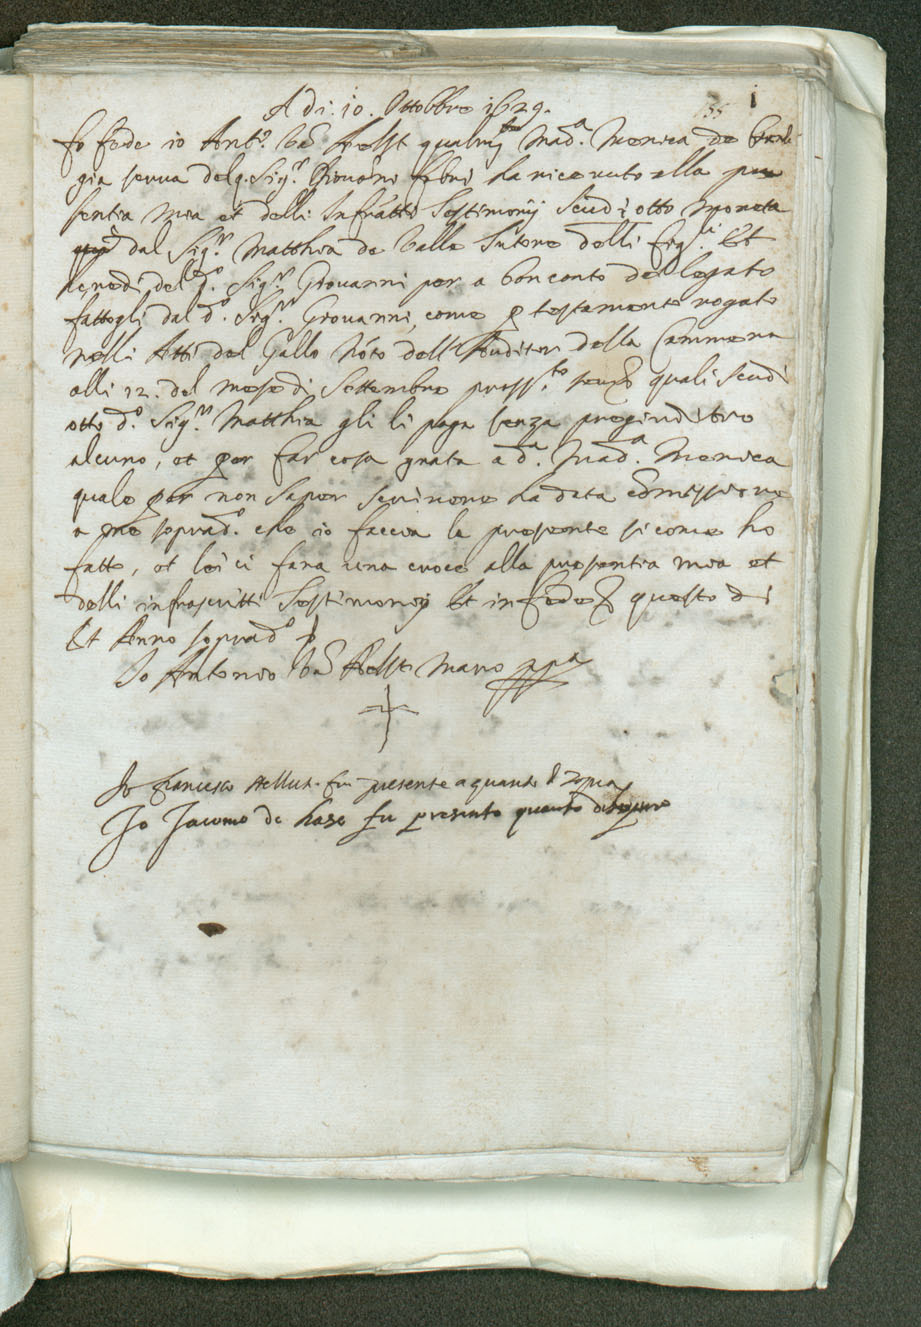 A di. 10. Ottobbre 1629. 1
fo fede io Ant.o Va Aelst qualm.te Mad.a Monica de
gia serva del q. Sig.r Giovāni fabri ha ricevuto alla pre
sentia mia et delli Infratti Testimonij scudi otto moneta
dal Sig.r Matthia de Valle Tutore delli fig.i Et
heredi del q.o Sig.r Giovanni per a bon conto del legato
fattogli dal d.o Sig.r Giovanni, come p testamento rogato
nelli Atti del Gallo Noto dell'Auditor della Cammera
alli 12. del mese di Settembre pross.to quali scudi
otto d.o Sig.r Matthia gli li paga senza pregiuditio
alcuno, et per far cosa grata a d.a Mad.a Monica
quale per non saper scrivere ha data cōmissione
a me soprad.o che io faccia la presente si come ho
fatto, et lei ci fara una croce alla presentia mia et
delli infrascritti Testimonij Et in fede questo di
Et Anno soprad.o
Io Antonio Va Aelst mano ppa
Io Francesco fui presente a quanto
Io Jacomo de hase fu presente quanto di sopra